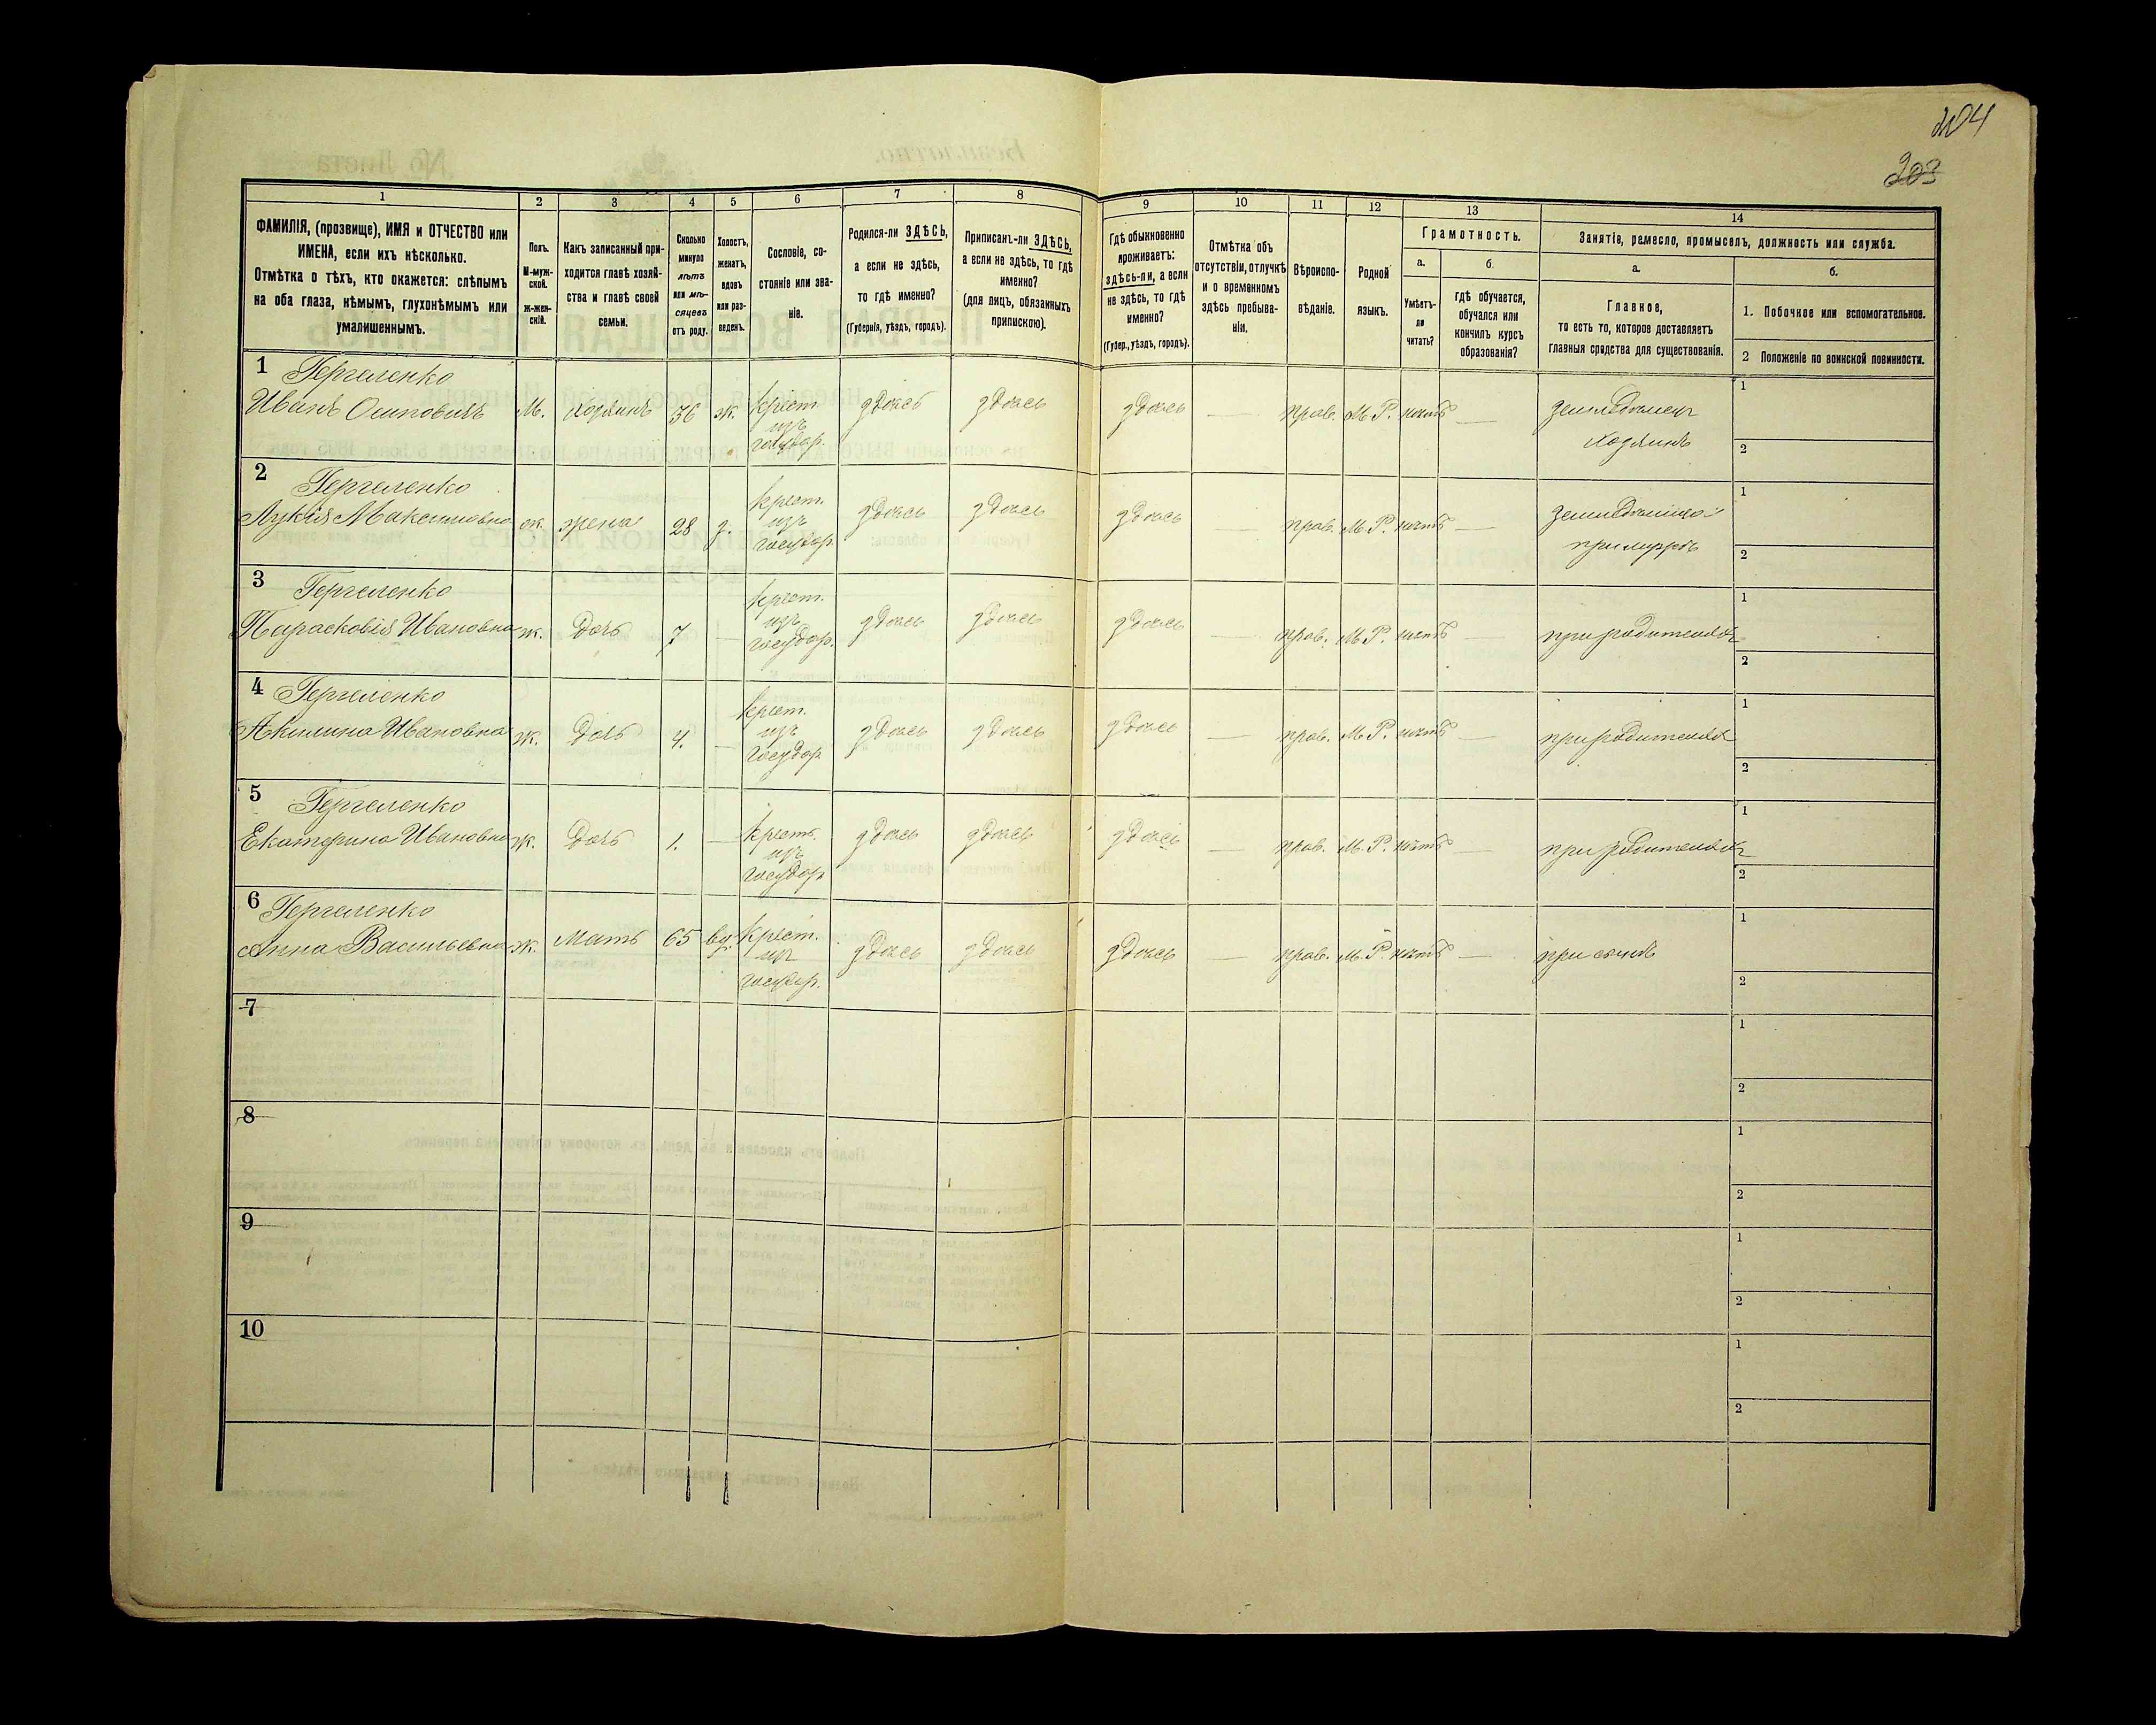 204
203
1
2
3
4
5
6
7
8
9
10
11
12
13
14
ФАМИЛІЯ, (прозвище), ИМЯ и ОТЧЕСТВО или
ИМЕНА, если ихъ нѣсколько.
Отмѣтка о тѣхъ, кто окажется: слѣпымъ
на оба глаза, нѣмымъ, глухонѣмымъ или
умалишеннымъ.
Полъ.
М-муж-
ской.
ж-жен-
скій.
Какъ записанный при-
ходится главѣ хозяй-
ства и главѣ своей
семьи.
Сколько
минуло
лѣтъ
или мѣ-
сяцевъ
отъ роду.
Холостъ,
женатъ,
вдовъ
или раз-
веденъ.
Сословіе, со-
стояніе или зва-
ніе.
Родился-ли ЗДѢСЬ,
а если не здѣсь,
то гдѣ именно?
(Губернія, уѣздъ, городъ).
Приписанъ-ли ЗДѢСЬ,
а если не здѣсь, то гдѣ
именно?
(для лицъ, обязанныхъ
припискою).
Гдѣ обыкновенно
проживаетъ:
здѣсь-ли, а если
не здѣсь, то гдѣ
именно?
(Губер., уѣздъ, городъ).
Отмѣтка объ
отсутствіи, отлучкѣ
и о временномъ
здѣсь пребыва-
ніи.
Вѣроиспо-
вѣданіе.
Родной
языкъ.
Грамотность.
а.
Умѣетъ-
ли
читать?
б.
гдѣ обучается,
обучался или
кончилъ курсъ
образованія?
Занятіе, ремесло, промыселъ, должность или служба.
а.
Главное,
то есть то, которое доставляетъ
главныя средства для существованія.
б.
1. Побочное или вспомогательное.
2 Положеніе по воинской повинности.
1 Гергеленко
Иванъ Осиповичъ М. хозяинъ 36 ж. крест. здѣсь здѣсь здѣсь — прав. М.Р. нѣтъ — земледѣлец 1
изъ
государ. хозяинъ 2
2 Гергеленко
Лукія Максимовна ж. жена 28 з. крест. здѣсь здѣсь здѣсь — прав. М.Р. нѣтъ — 1
изъ
государ. при мужѣ 2
3 Гергеленко
Парасковія Ивановна ж. Дочь 7 — крест. здѣсь здѣсь здѣсь — прав. М.Р. нѣтъ — при родителях 1
изъ
государ. 2
4 Гергеленко
Акилина Ивановна ж. Дочь 4. — крест. здѣсь здѣсь здѣсь — прав. М.Р. нѣтъ — при родителях 1
изъ
государ. 2
5 Гергеленко
Екатерина Ивановна ж. Дочь 1. — крест. здѣсь здѣсь здѣсь — прав. М.Р. нѣтъ — при родителях 1
изъ
государ. 2
6 Гергеленко
Анна Васильевна ж. Мать 65 вд. крест. здѣсь здѣсь здѣсь — прав. М.Р. нѣтъ — при сынѣ 1
из
государ. 2
7 1
2
8 1
2
9 1
2
10 1
2